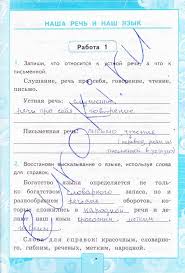 НАША РЕЧЬ И НАШ ЯЗЫК
Работа 1
1. Запиши, что относится к устной речи, а что к
письменной.
Слушание, речь про себя, говорение, чтение,
письмо.
Устная речь: слушание,
речь про себя, говорение
Письменная речь: письмо чтение
2. Восстанови высказывание о языке, используя слова
для справок.
Богатство языка определяется не толь-
ко богатством словарного запаса, но и
разнообразием речевых оборотов, ко-
торые сложились в народной речи и де-
лают наш язык красочным,
гибким.
Слова для справок: красочным, словарно-
го, гибким, речевых, народной, метким.